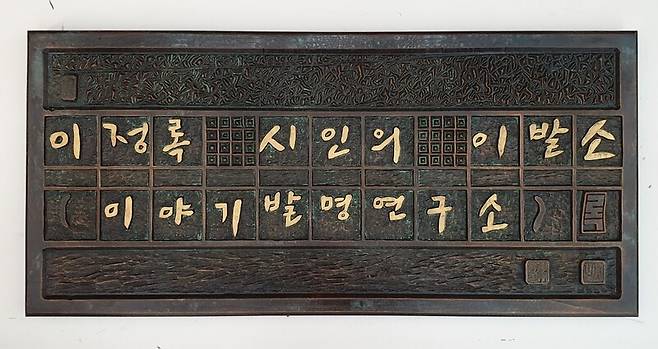 이정록 시인의 이발소
이야기발명연구소